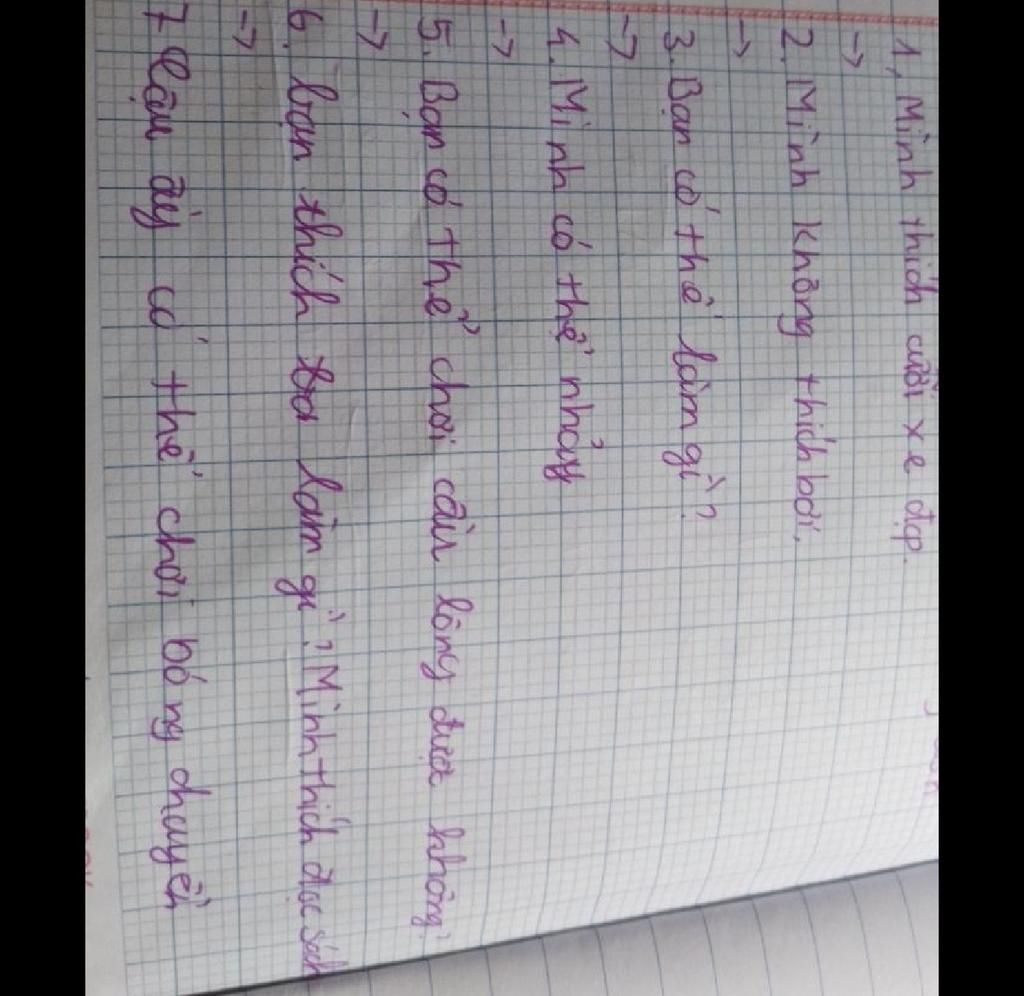 1, Mình thích cưỡi xe đạp.
→
2. Mình không thích bơi.
→
3. Bạn có thể làm gì?
→
4. Mình có thể nhảy
→
5. Bạn có thể chơi cầu lông được không?
→
6. bạn thích làm gì? Mình thích đọc sách
→
7. cậu ấy có thể chơi bóng chuyền